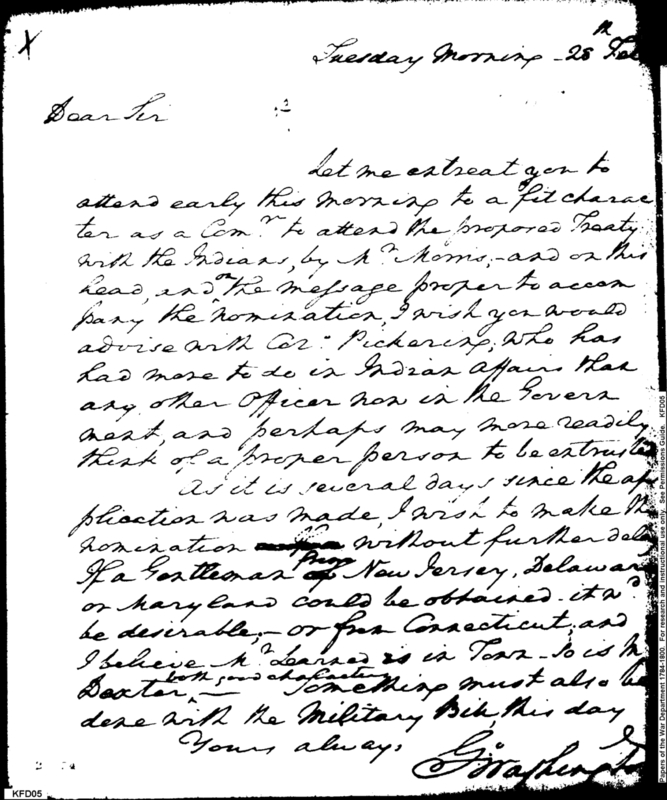 X
Tuesday Morning - 28th Feb
Dear Sir
Let me entreat you to
attend early this morning to a fit charac
ter as a Comr. to attend the proposed Treaty
with the Indians, by Mr Morris,- and on this
head, and on the message proper to accom
pany the nomination, I wish you would
advise with Colo. Pickering, who has
had more to do in Indian Affairs than
any other Officer now in the Govern
ment, and perhaps may more readily
think of a proper person to be entrusted
As it is several days since the ap
plication was made, I wish to make the
nomination without further delay
If a Gentleman from New Jersey, Delaware
or Maryland could be obtained - it wd.
be desirable,- or from Connecticut; and
I believe Mr Learned is in Town - so is Mr
Dexter, both good characters - Something must also be
done with the Military Bill, this day
Yours always
Go Washington
KFD05
Papers of the War Department 1784-1800. For research and instructional use only. See Permissions Guide. KFD05